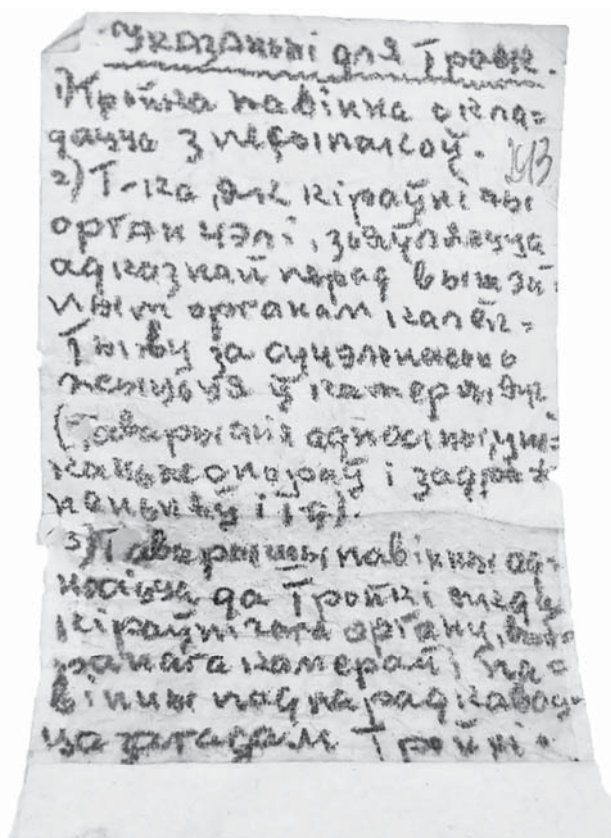 Указаньні для Тройк.
1) Тройка павінна скла=
дацца з песыпалсоў.
293
2) Т-ка, як кіраўнічы
орган цэлі, зьяўляецца
адказнай перад вышэй=
шым органам калек=
тыву за суцэльнасьць
жыцьця ў камеры
(таварыскія адносіны,
спораў і
і г.д.).
3) Таварышы павінны ад=
носіцца да Тройкі як да
кіраўнічага органу, вы=
бранага камерай і па=
вінны падпарадкавац=
ца загадам Тройкі.